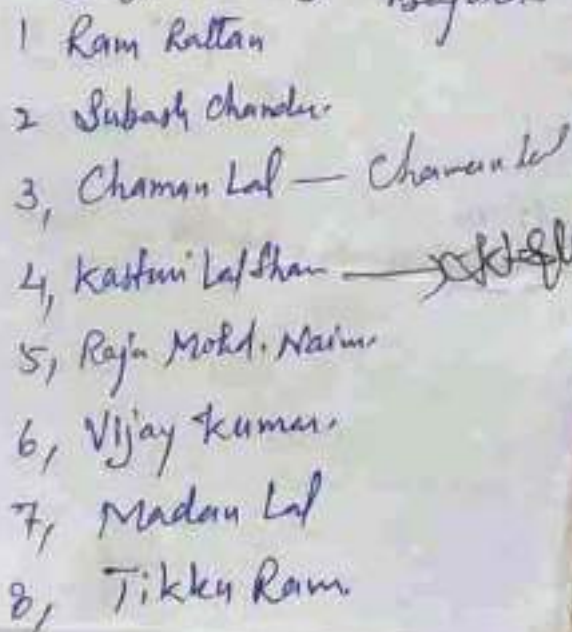 1 Ram Rattan
2 Subash Chander.
3, Chaman Lal — Chaman Lal
4, Kasturi Lal Shan —
5, Raja Mohd. Naim.
6, Vijay Kumar.
7, Madan Lal
8, Tikku Ram.